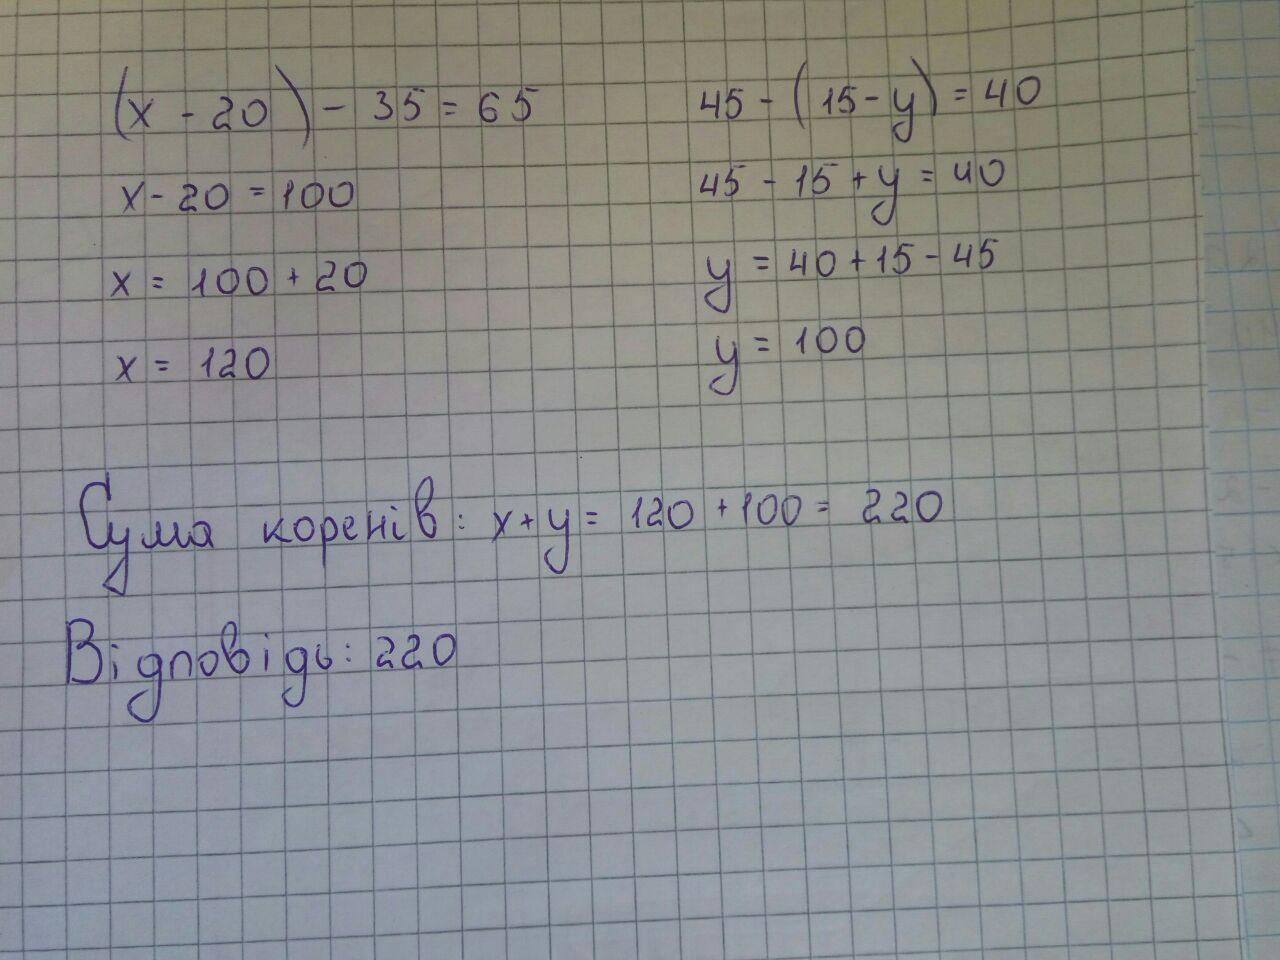 (x - 20) - 35 = 65
x - 20 = 100
x = 100 + 20
x = 120
45 - (15 - y) = 40
45 - 15 + y = 40
y = 40 + 15 - 45
y = 100
Сума коренів: x + y = 120 + 100 = 220
Відповідь: 220